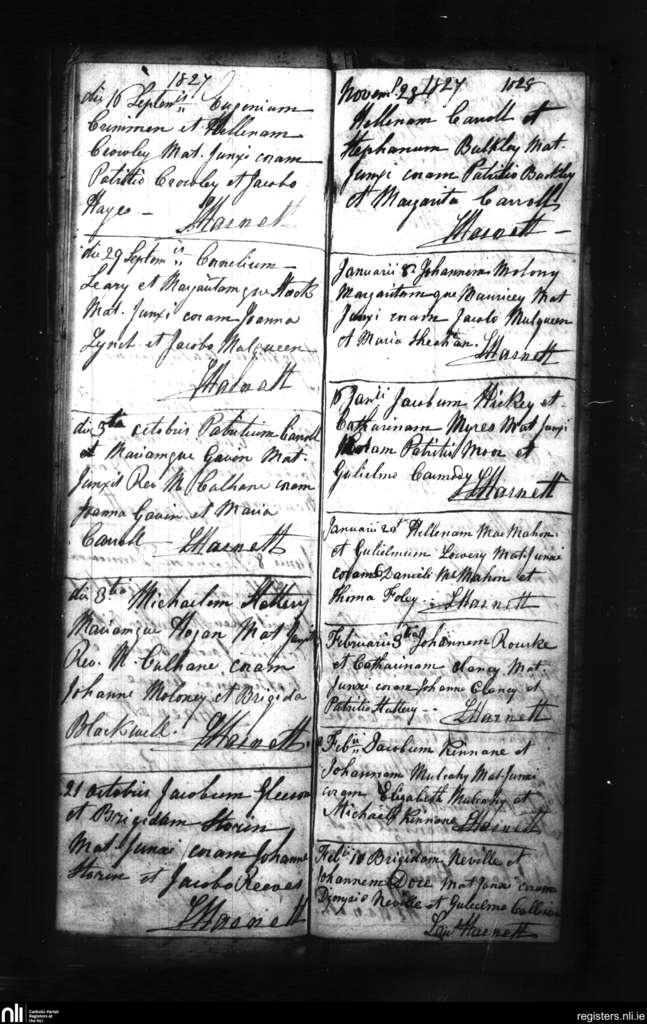 1827
die 16 Septem is Eugenium
Crimmen et Hellenam
Crowley Mat. Junxi coram
Patritio Crowley et Jacobo
Hayes — LHarnett
die 29 Septem is Cornelium
Leary et Margaritamque Hack
Mat. Junxi coram Joanna
Lynch et Jacobo Mulqueen
LHarnett
die 5ta octobris Patritium Carroll
et Mariamque Gavin Mat.
Junxit Rev M Culhane coram
Joanna Gavin et Maria
Carroll — LHarnett
die 8tio Michaelem Slattery
Mariamque Hogan Mat Junxit
Rev. M. Culhane coram
Johanne Moloney et Brigida
Blackwell. LHarnett.
21 octobris Jacobum Gleeson
et Brigidam Storin
Mat. Junxi coram Johanne
Storin et Jacobo Reeves
LHarnett
Novem 28 1827 1028
Hellenam Carroll et
Stephanum Bulkley Mat.
Junxi coram Patritio Buckley
et Margarita Carroll
LHarnett —
Januarii 8 Johannem Molony
Margaritam que Mauricey Mat
Junxi coram Jacobo Mulqueen
et Maria Sheehan. LHarnett
16 Janii Jacobum Hickey et
Catharinam Myres Mat Junxi
coram Patritio Moor et
Gulielmo Carmody LHarnett
Januarii 20 Hellenam MacMahon
et Gulielmum Lowery Mat. Junxi
coram Danieli McMahon et
Thoma Foley — LHarnett
Februarii 3tia Johannem Rourke
et Catharinam Clancy Mat.
Junxi coram Johanne Clancy et
Patritio Slattery — LHarnett
Febii Jacobum Kinnane et
Johannam Mulcahy Mat Junxi
coram Elizabeth Mulcahy et
Michael Kinnane LHarnett
Febii 10 Brigidam Neville et
Johannem Dore Mat Junxi coram
Dionysio Neville et Gulielmo
Harnett
nli
Catholic Parish
Registers at
the NLI
registers.nli.ie